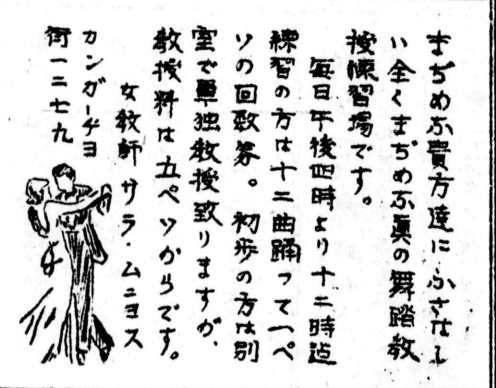 まぢめな貴方達にふさはし
い全くまぢめな真の舞踏教
授練習場です。
毎日午後四時より十二時迠
練習の方は十二曲踊って一ペ
ソの回数券。初歩の方は別
室で単独教授致りますが、
教授料は五ペソからです。
女教師 サラ・ムニヨス
カンガーチヨ
街一二七九